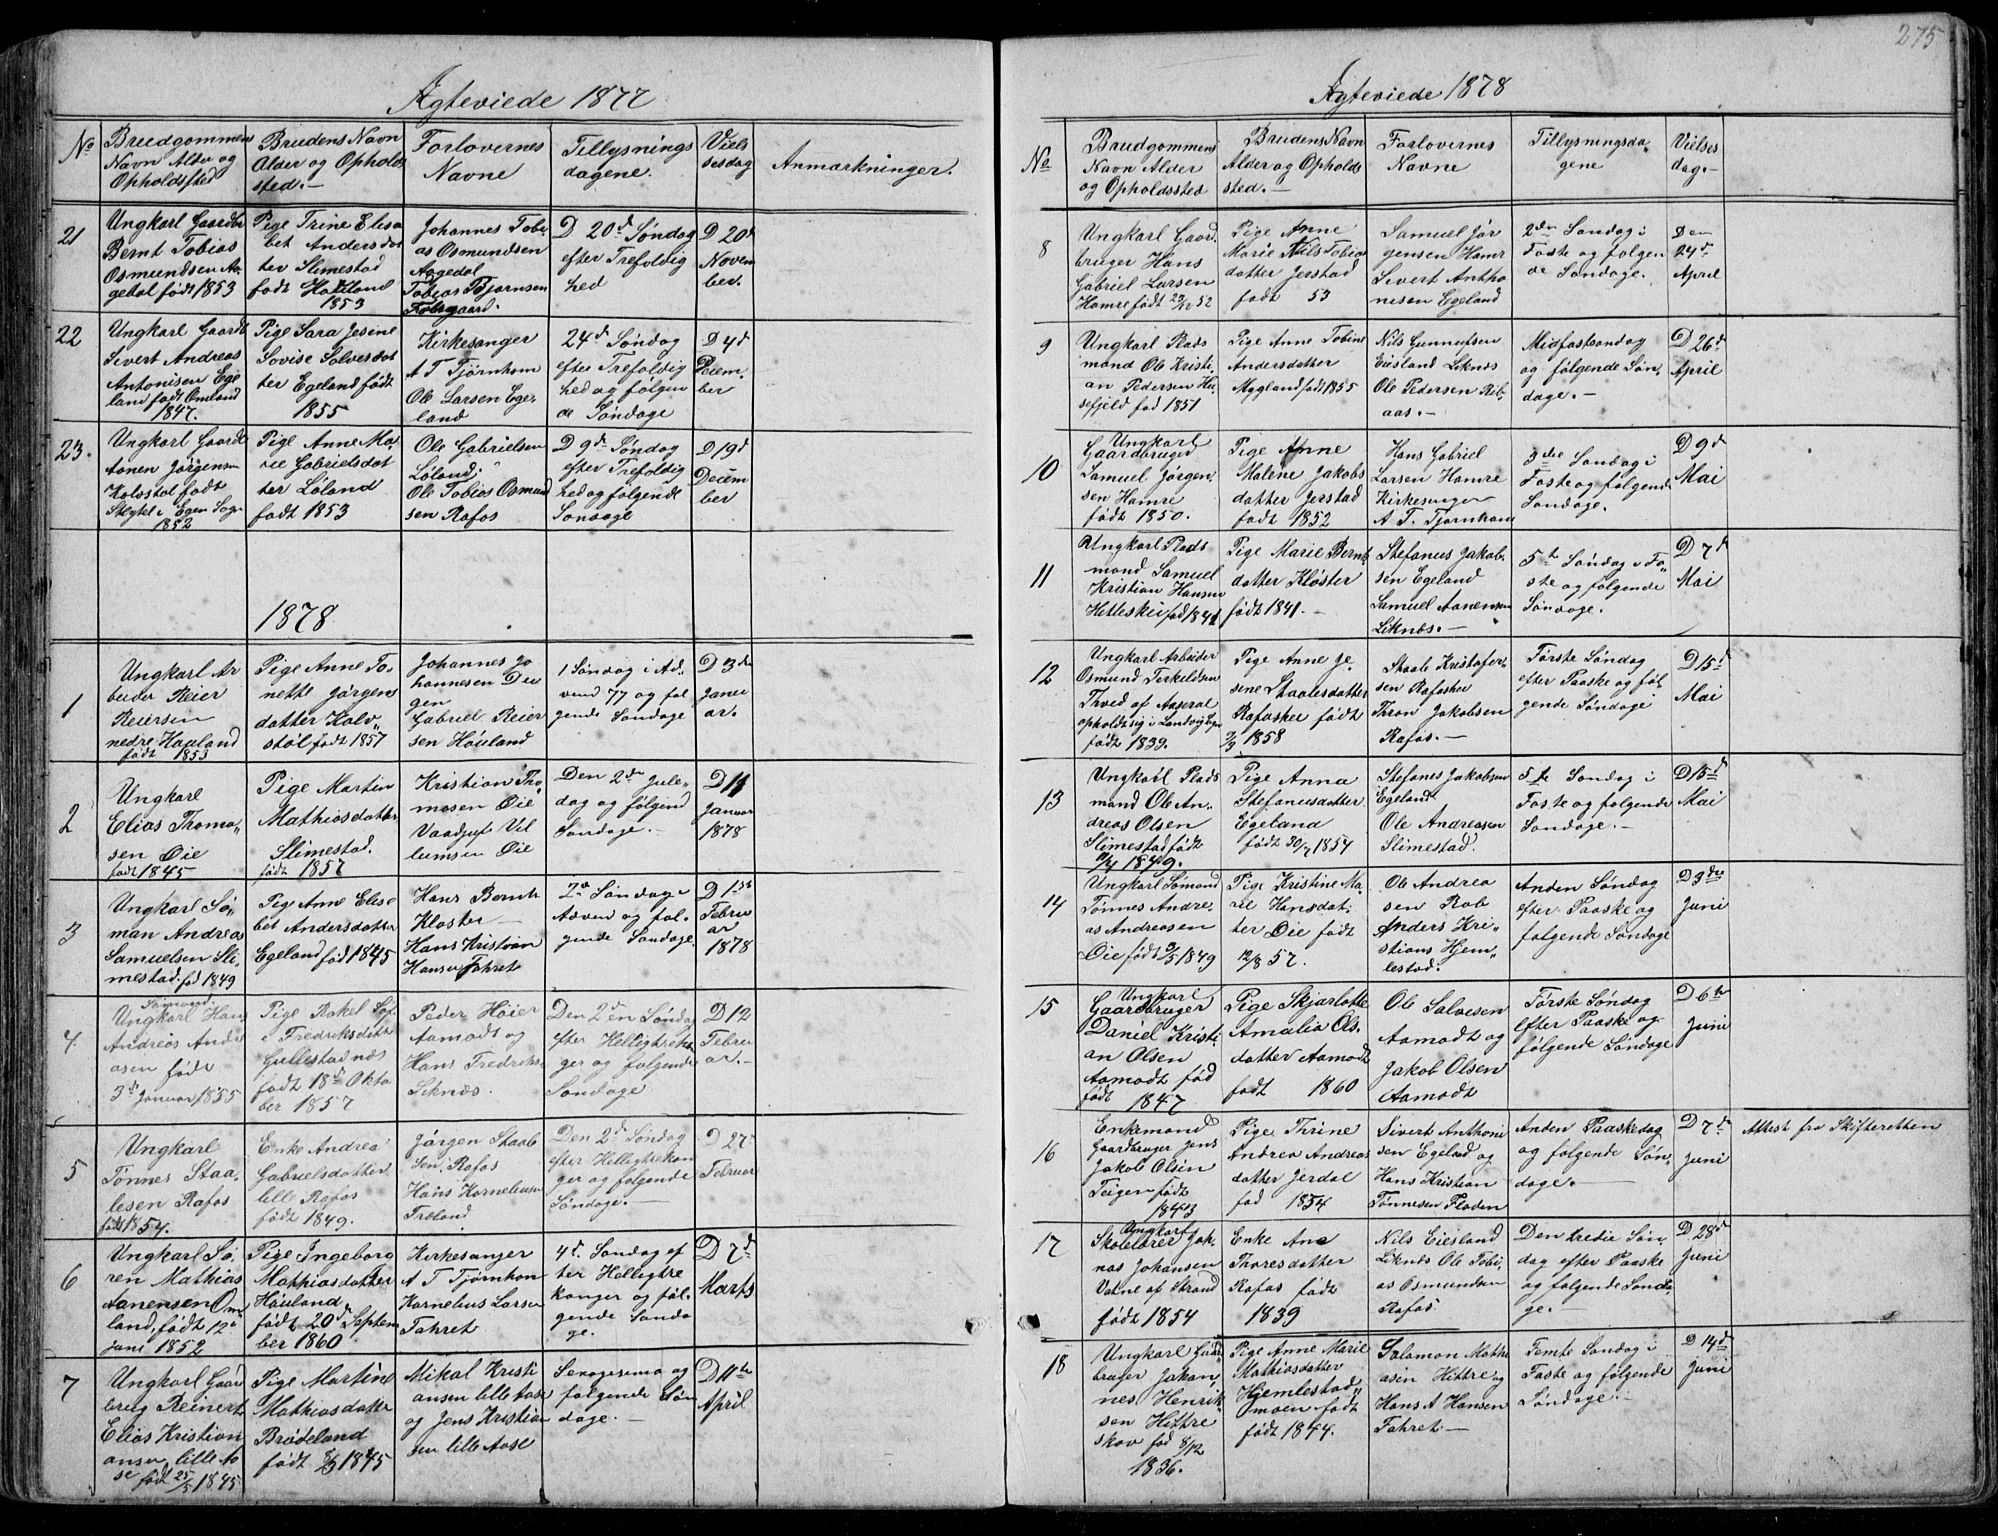 Ægteviede 1877
No
Brudgommens
Navn Alder og
Opholdssted
Brudens Navn
Alder og Opholds
sted.-
Forlovernes
Navne
Tillysnings
dagene.
Viels
sesdag
Anmærkninger.
21
Ungkarl Gaardbr
Bernt Tobias
Osmundsen Aa
gedal født 1853
Pige Trine Elisa
bet Andersdat
ter Slimestad
født Haüland
1853
Johannes Tobi
as Osmundsen
Aagedal
Tobias Bjørnsen
D 20d Søndag
efter Trefoldig
hed
D 20d
Novem
ber.
22
Ungkarl Gaardb
Sivert Andreas
Antonisen Ege
land født Omland
1847.
Pige Sara Jesine
Lovise Salvesdat
ter Egeland født
1855
Kirkesanger
A T Tjørnhom
Ole Larsen Ege
land
24d Søndag
efter Trefoldig
hed og følgen
de Søndage
D 4d
Decem
ber
23.
Ungkarl Gaardb
Aanen Jørgensen
Kalvstøl født
i Egen Sogn
1852
Pige Anne Ma
rie Gabrielsdat
ter Løland
født 1853
Ole Gabrielsen
Løland.
Ole Tobias Osmund
sen Rafos
D 9d Søndag
efter Trefoldig
hed og følgende
Søndage
D 19d
Decem
ber
1878
1
Ungkarl Ar
beider Reier
Reiersen
nedre Haüland
født 1853
Pige Anne To
nette Jørgens
datter Kalv
støl født 1857
Johannes Jo
hannesen Dü
gen
Gabriel Reier
sen Høüland
1 Søndag i Ad
vend 77 og føl
gende Søndage
D 3de
Janu
ar.
2
Ungkarl
Elias Thoma
sen Øie
født 1845
Pige Martin
Mathiasdatter
Slimestad.
født 1857
Kristian Tho
masen Øie
Vaadjuf Vil
lumsen Øie
Den 2den Jule
dag og følgend
Søndage.-
D 11
Januar
1878
3
Ungkarl Sø
man Andreas
Samuelsen Sli
mestad. fød 1849
Pig Anne Elise
bet Andersdatter
Egeland fød 1845
Hans Bernh
Kloster -
Hans Kristian
Hansen Fahret
2d Søndage
Adven og føl
gende Søndage
D 1ste
Febru
ar
1878
4
Sømand.
Ungkarl Han
Andreas Andre
asen født
3d Januar 1855
Pige Rakel Sof
e Fredriksdatt
Gullestadnæs
født 18de Okto
ber 1857
Peder Høier
Aamodt og
Hans Fredriks
Liknæs.
Den 2den Sønda
efter Helligtrekon
ger og følgende
Søndage
D 12
Febru
ar.-
5
Ungkarl
Tønnes Staa
lesen Rafos
født 1854.
Enke Andrea
Gabrielsdatter
lille Rafos
født 1849.
Jørgen Staale
sen Rafos
Hans Korneliusen
Træland
Den 2d Søndag
efter Helligtrekon
ger og følgende
Søndage.
D 27
Februar
6
Ungkarl Sø
ren Mathias
Aanensen Om
land, født 12
juni 1852
Pige Ingeborg
Mathiasdatter
Høüland
født 20d Septem
ber 1860
Kirkesanger
A T Tjørnhom
Kornelius Larsen
Fahret
4d. Søndag ef
ter Helligtre
konger og føl
gende Sønda
ge.
D 7d
Marts
7
Ungkarl Gaar
brug Reinert
Elias Kristian
ansen lille Aa
se født 25/5 1845
Pige Martine
Mathiasdatter
Brødeland
født 1845
Mikal Kristi
ansen lille Aase
og Jens Kristian
sen lille Aase
Sexagesima og
følgende Søn
dage.-
D 11te
April
275
Ægteviede 1878
No
Brudgommens
Navn Alder
og Opholdssted
Brudens Navn
Alder og Opholds
sted.-
Forlovernes
Navne
Tillysningsda
gene
Vielses
dag.-
8
Ungkarl Gaard
bruger Hans
Gabriel Larsen
Hamre født 52
Pige Anne
Marie Nils Tobias
datter Jerstad
født 53
Samuel Jør
gensen Hamr
Sivert Antho
nisen Egeland
2den Søndag i
Faste og følgen
de Søndage.
Den
24d
April
9
Ungkarl Plads
mand Ole Kristi
an Pedersen Hu
sefjeld fød 1851
Pige Anne Tobine
Andersdatter
Mygland født 1855
Nils Gunnufsen
Eiesland Liknæs
Ole Pedersen Rib
aas.-
Midfastsøndag
og følgende Søn
dage.-
D 26d
April
10
Ungkarl
Gaardbruger
Samuel Jørgen
sen Hamre
født 1850.
Pige Anne
Malene Jakobs
datter Jerstad
født 1852
Hans Gabriel
Larsen Hamre
Kirkesanger
A T. Tjørnhom
3die Søndag i
Faste og følgende
Søndage.
D 9d
Mai
11
Ungkarl Plads
mand Samuel
Kristian Hansen
Hetleskei fød 1841
Pige Marie Bernt
datter Kløster
født 1841.-
Stefanus Jakob
sen Egeland
Samuel Aanensen
Liknæs.-
5te Søndag i Fa
ste og følgende
Søndage.
D 7d
Mai
12
Ungkarl Arbeider
Osmund Terkeldsen
Thved af Aaseral
opholdsig i Landvig Egn
født 1839.
Pige Anne Je
sene Staalesdatter
Rafosker født
1858
Staale Kristofer
sen Rafosker
Thron Jakobsen
Rafos.-
Første Søndag
efter Paaske og føl
gende Søndage
D 15d
Mai
13
Ungkarl Plads
mand Ole An
dreas Olsen
Slimestad født
1849.
Pige Anna
Stefanusdatter
Egeland
født 30/7 1854
Stefanes Jakobsen
Egeland
Ole Andreasen
Slimestad.
5te Søndag i
Faste og følgende
Søndage.-
D 15d
Mai
14
Ungkarl Sømand
Tønnes Andre
as Andreasen
Øie født 3/5 1849
Pige Kristine Ma
rie Hansdat
ter Øie født
12/8 57.
Ole Andrea
sen Rob
Anders Kri
stians Hjem
lestad.
Anden Søndag
efter Paaske og
følgende Søndage
D 3die
Juni
15
Ungkarl
Gaardbruger
Daniel Kristi
an Olsen
Aamodt fød
født 1847
Pige Skjarlotte
Amalia Ols
datter Aamodt
født 1860
Ole Salvesen
Aamodt og
Jakob Olsen
Aamodt
Første Søndag
efter Paaske og
følgende Søndage
D 6te
Juni
16
Enkemand
Gaardbruger Jens
Jakob Olsen
Teigen født
1843
Pige Thrine
Andrea Andreas
datter Jerdal
fød 1854
Sivert Anthoni
sen Egeland og
Hans Kristian
Tønnesen Fladen
Anden Paaskedag
og følgende Søn
dage.-
D 7de
Juni
Attest fra Skifteretten
17
Ungkarl
Skolelærer Jak
nas Johansen
Vatne af Strand
født 1854
Enke Ana
Thoresdatter
Rafos født
1839
Nils Eiesland
Liknæs Ole Tobi
as Osmundsen
Rafos
Den tredie Søn
dag efter Paaske
og følgende Sønda
ge.-
D 28d
Juni
18
Ungkarl Gaard
bruger Johan
nes Henrik
sen Hittre
skov fød 8/12
1836.
Pige Anne Marie
Mathiasdatter
Hjemlestad
moen født
født 1844.
Salamon Mathi
asen Hittre og
Hans A Hansen
Fahret-
Femte Søndag i
Faste og følgende
Søndage.-
D 14d
Juni